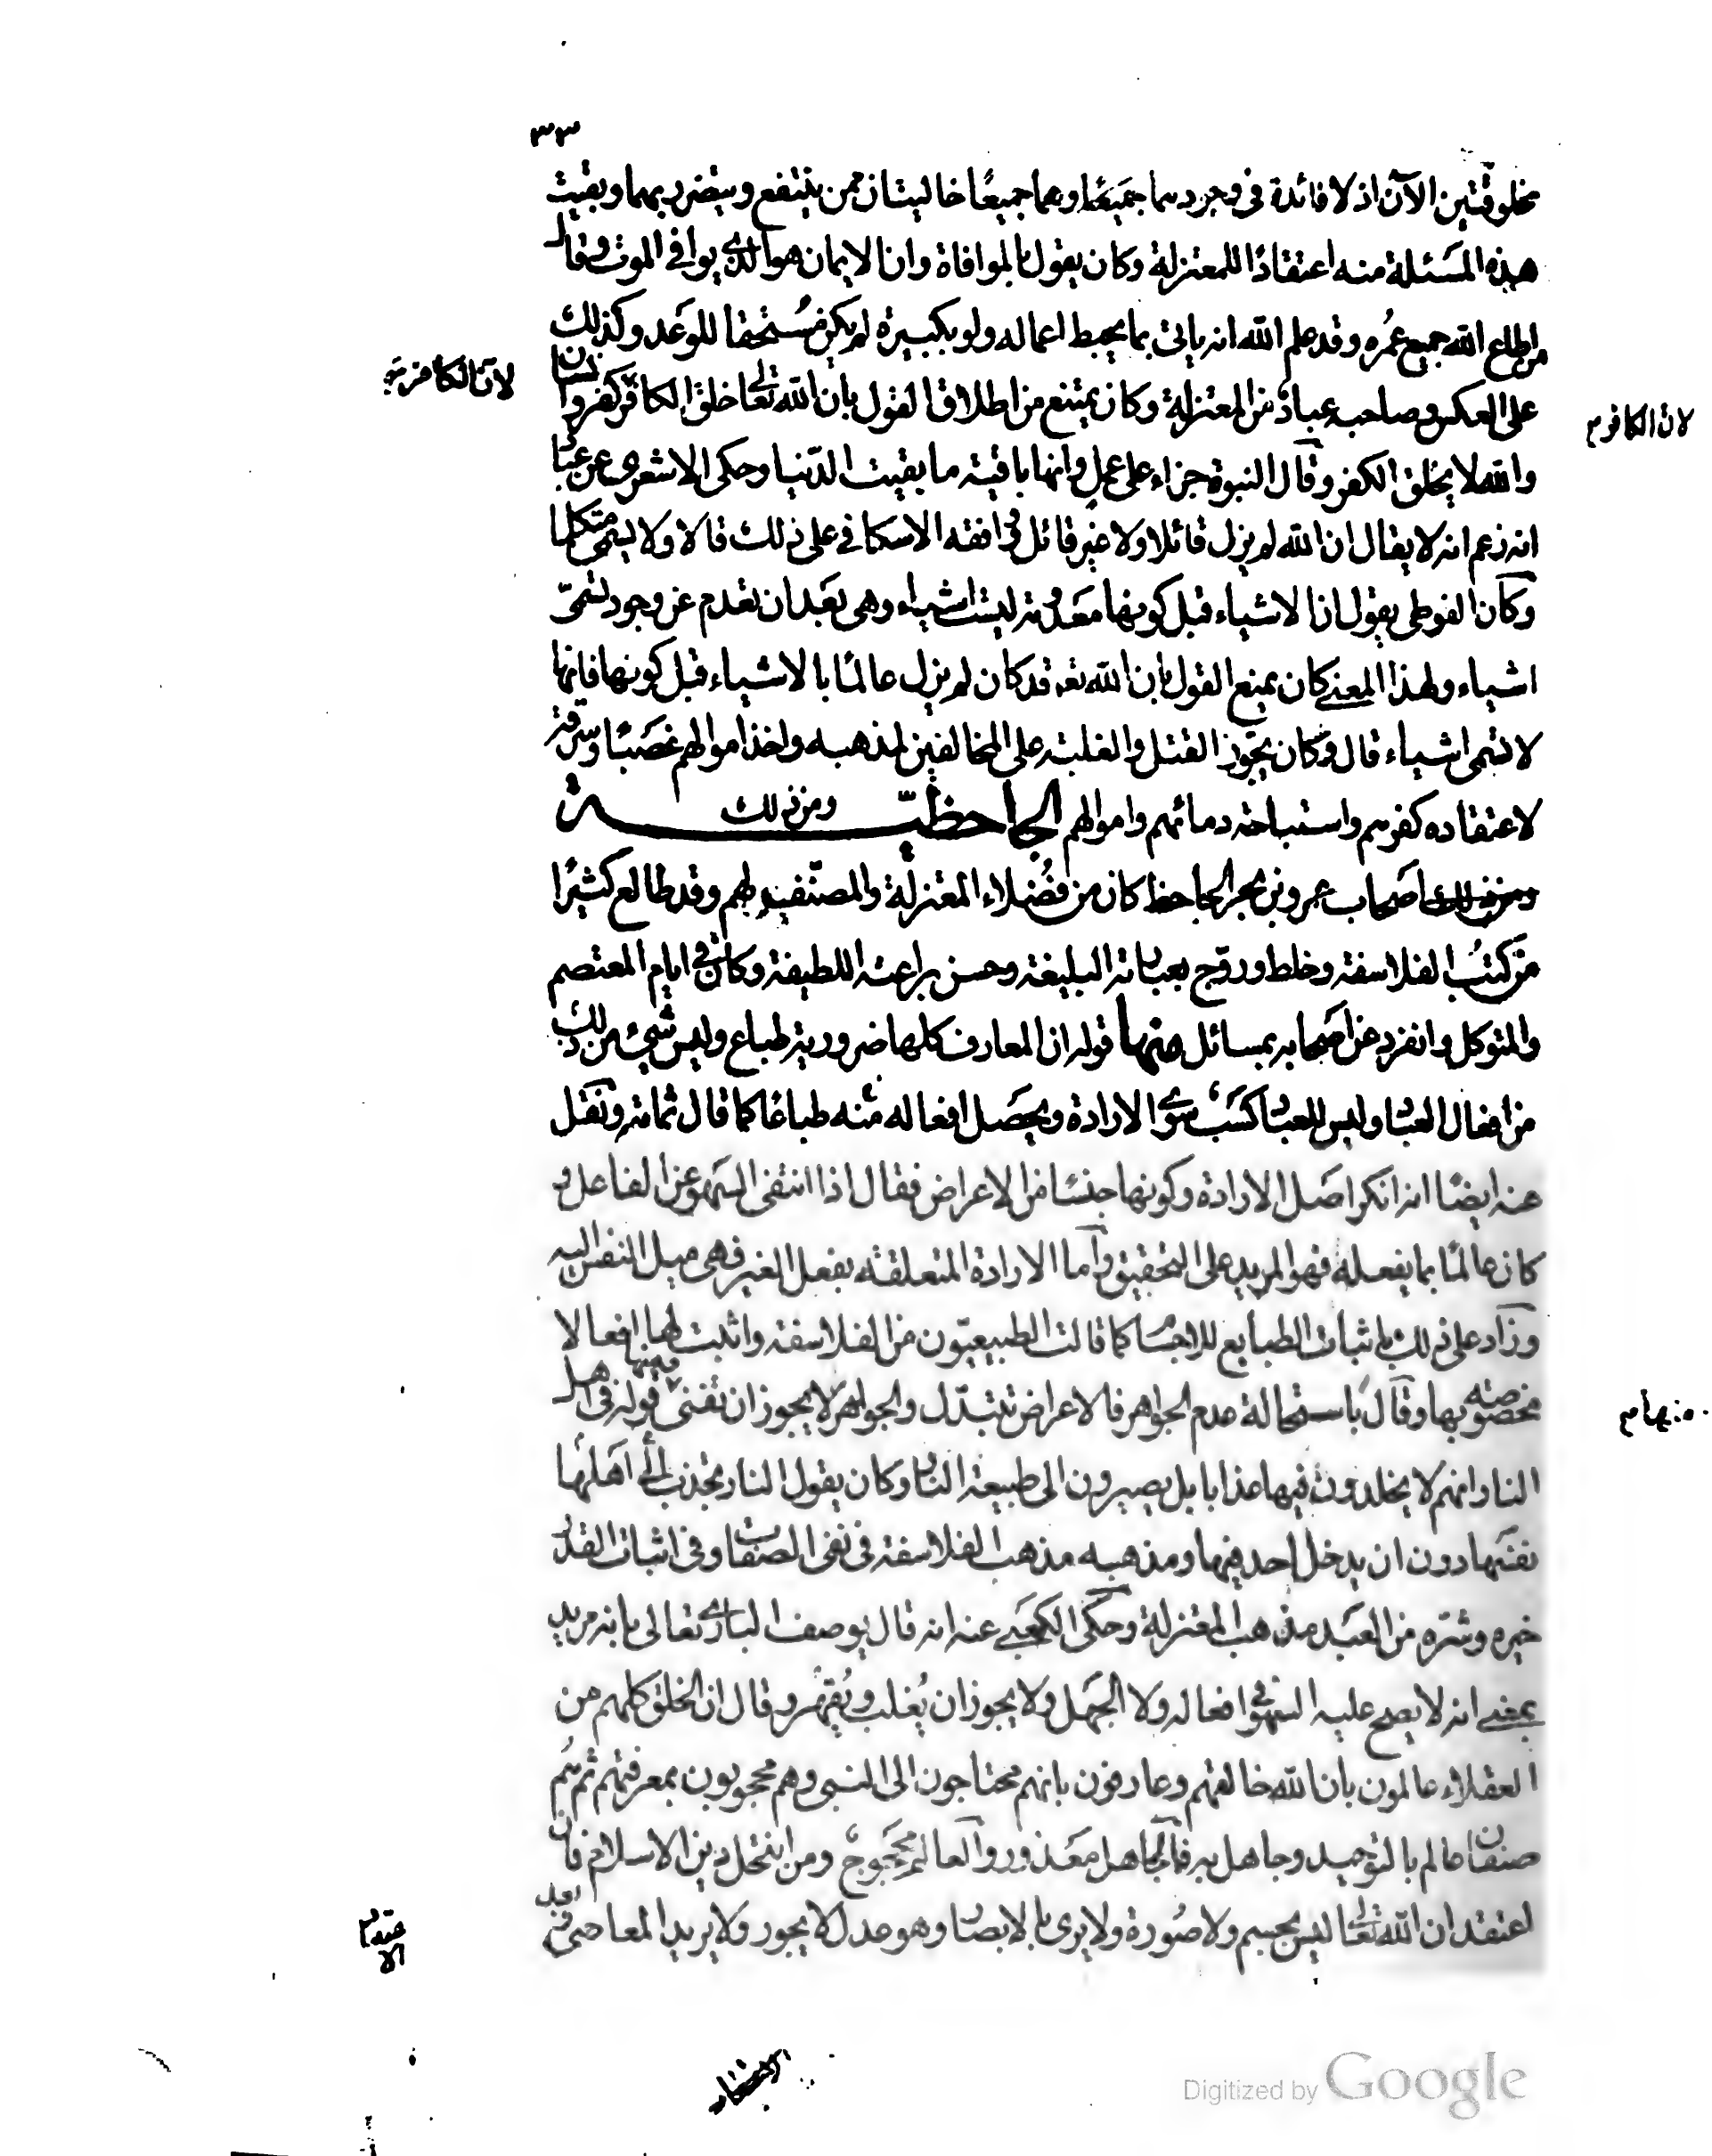 ٣٣
مخلوقتين الآن اذ لا فائدة فى وجودهما جميعًا وهما جميعًا خاليتان ممن ينتفع ويتضرر بهما وبقيت
هذه المسئلة منه اعتقادًا للمعتزلة وكان يقول بالموافاة وان الايمان هو الذى يوافى الموت وقال
من اطاع الله جميع عمره وقد علم الله انه ياتى بما يحبط اعماله ولو بكبيرة لم يكن مستحقا للوعد وكذلك
على العكس وصاحبه عباد من المعتزلة وكان يمتنع من اطلاق القول بان الله تعالى خلق الكافر كفر وانسان
لان الكافر
لان الكافر م
والله لا يخلق الكفر وقال النبوة جزاء على عمل وانها باقية ما بقيت الدنيا وحكى الاشعرى عن عباد
انه زعم انه لا يقال ان الله لم يزل قائلا ولا غير قائل ووافقه الاسكافى على ذلك قالا ولا يسمى متكلما
وكان الفوطى يقول ان الاشياء قبل كونها معدومة ليست اشياء وهى بعد ان تعدم عن وجود تسمى
اشياء ولهذا المعنى كان يمنع القول بان الله تع قد كان لم يزل عالمًا بالاشياء قبل كونها فانها
لا تسمى اشياء قال وكان يجوز القتل والغلبة على المخالفين لمذهبه واخذ اموالهم غصبًا وسرقة
لاعتقاده كفرهم واستباحة دمائهم واموالهم الجاحظية ومن ذلك
ومن ذلك اصحاب عمرو بن بحر الجاحظ كان من فضلاء المعتزلة والمصنفين لهم وقد طالع كثيرًا
من كتب الفلاسفة وخلط وروّج بعباراته البليغة وحسن براعته اللطيفة وكان فى ايام المعتصم
والمتوكل وانفرد عن اصحابه بمسائل منها قوله ان المعارف كلها ضرورية طباع وليس شئ من ذلك
من افعال العباد وليس للعباد كسب سوى الارادة ويحصل افعاله منه طباعًا كما قال ثمامة ونقل
عنه ايضًا انه انكر اصل الارادة وكونها جنسًا من الاعراض فقال اذا انتفى السهو عن الفاعل و
كان عالمًا بما يفعله فهو المريد على التحقيق واما الارادة المتعلقة بفعل الغير فهى ميل النفس اليه
وزاد على ذلك باثبات الطبايع للاجسام كما قالت الطبيعيّون من الفلاسفة واثبت لها افعالا
مخصوصة بها وقال باستحالة عدم الجواهر فالاعراض تتبدّل والجواهر لا يجوز ان تفنى ومنها قوله فى اهل
النار انهم لا يخلدون فيها عذابا بل يصيرون الى طبيعة النار وكان يقول النار تجذب الى اهلها
نفسها دون ان يدخل احد فيها ومذهبه مذهب الفلاسفة فى نفى الصفات وفى اثبات القدر
خيره وشره من العبد مذهب المعتزلة وحكى الكعبى عنه انه قال يوصف البارى تعالى بانه مريد
بمعنى انه لا يصح عليه السهو فى افعاله ولا الجهل ولا يجوز ان يُغلب ويُقهر وقال ان الخلق كلهم من
العقلاء عالمون بان الله خالقهم وعارفون بانهم محتاجون الى النبى وهم محجوبون بمعرفتهم ثم هم
صنفان عالم بالتوحيد وجاهل به فالجاهل معذور والعالم محجوج ومن انتحل دين الاسلام فان
اعتقد ان الله تعالى ليس بجسم ولا صورة ولا يرى بالابصار وهو عدل لا يجور ولا يريد المعاصى
Digitized by Google